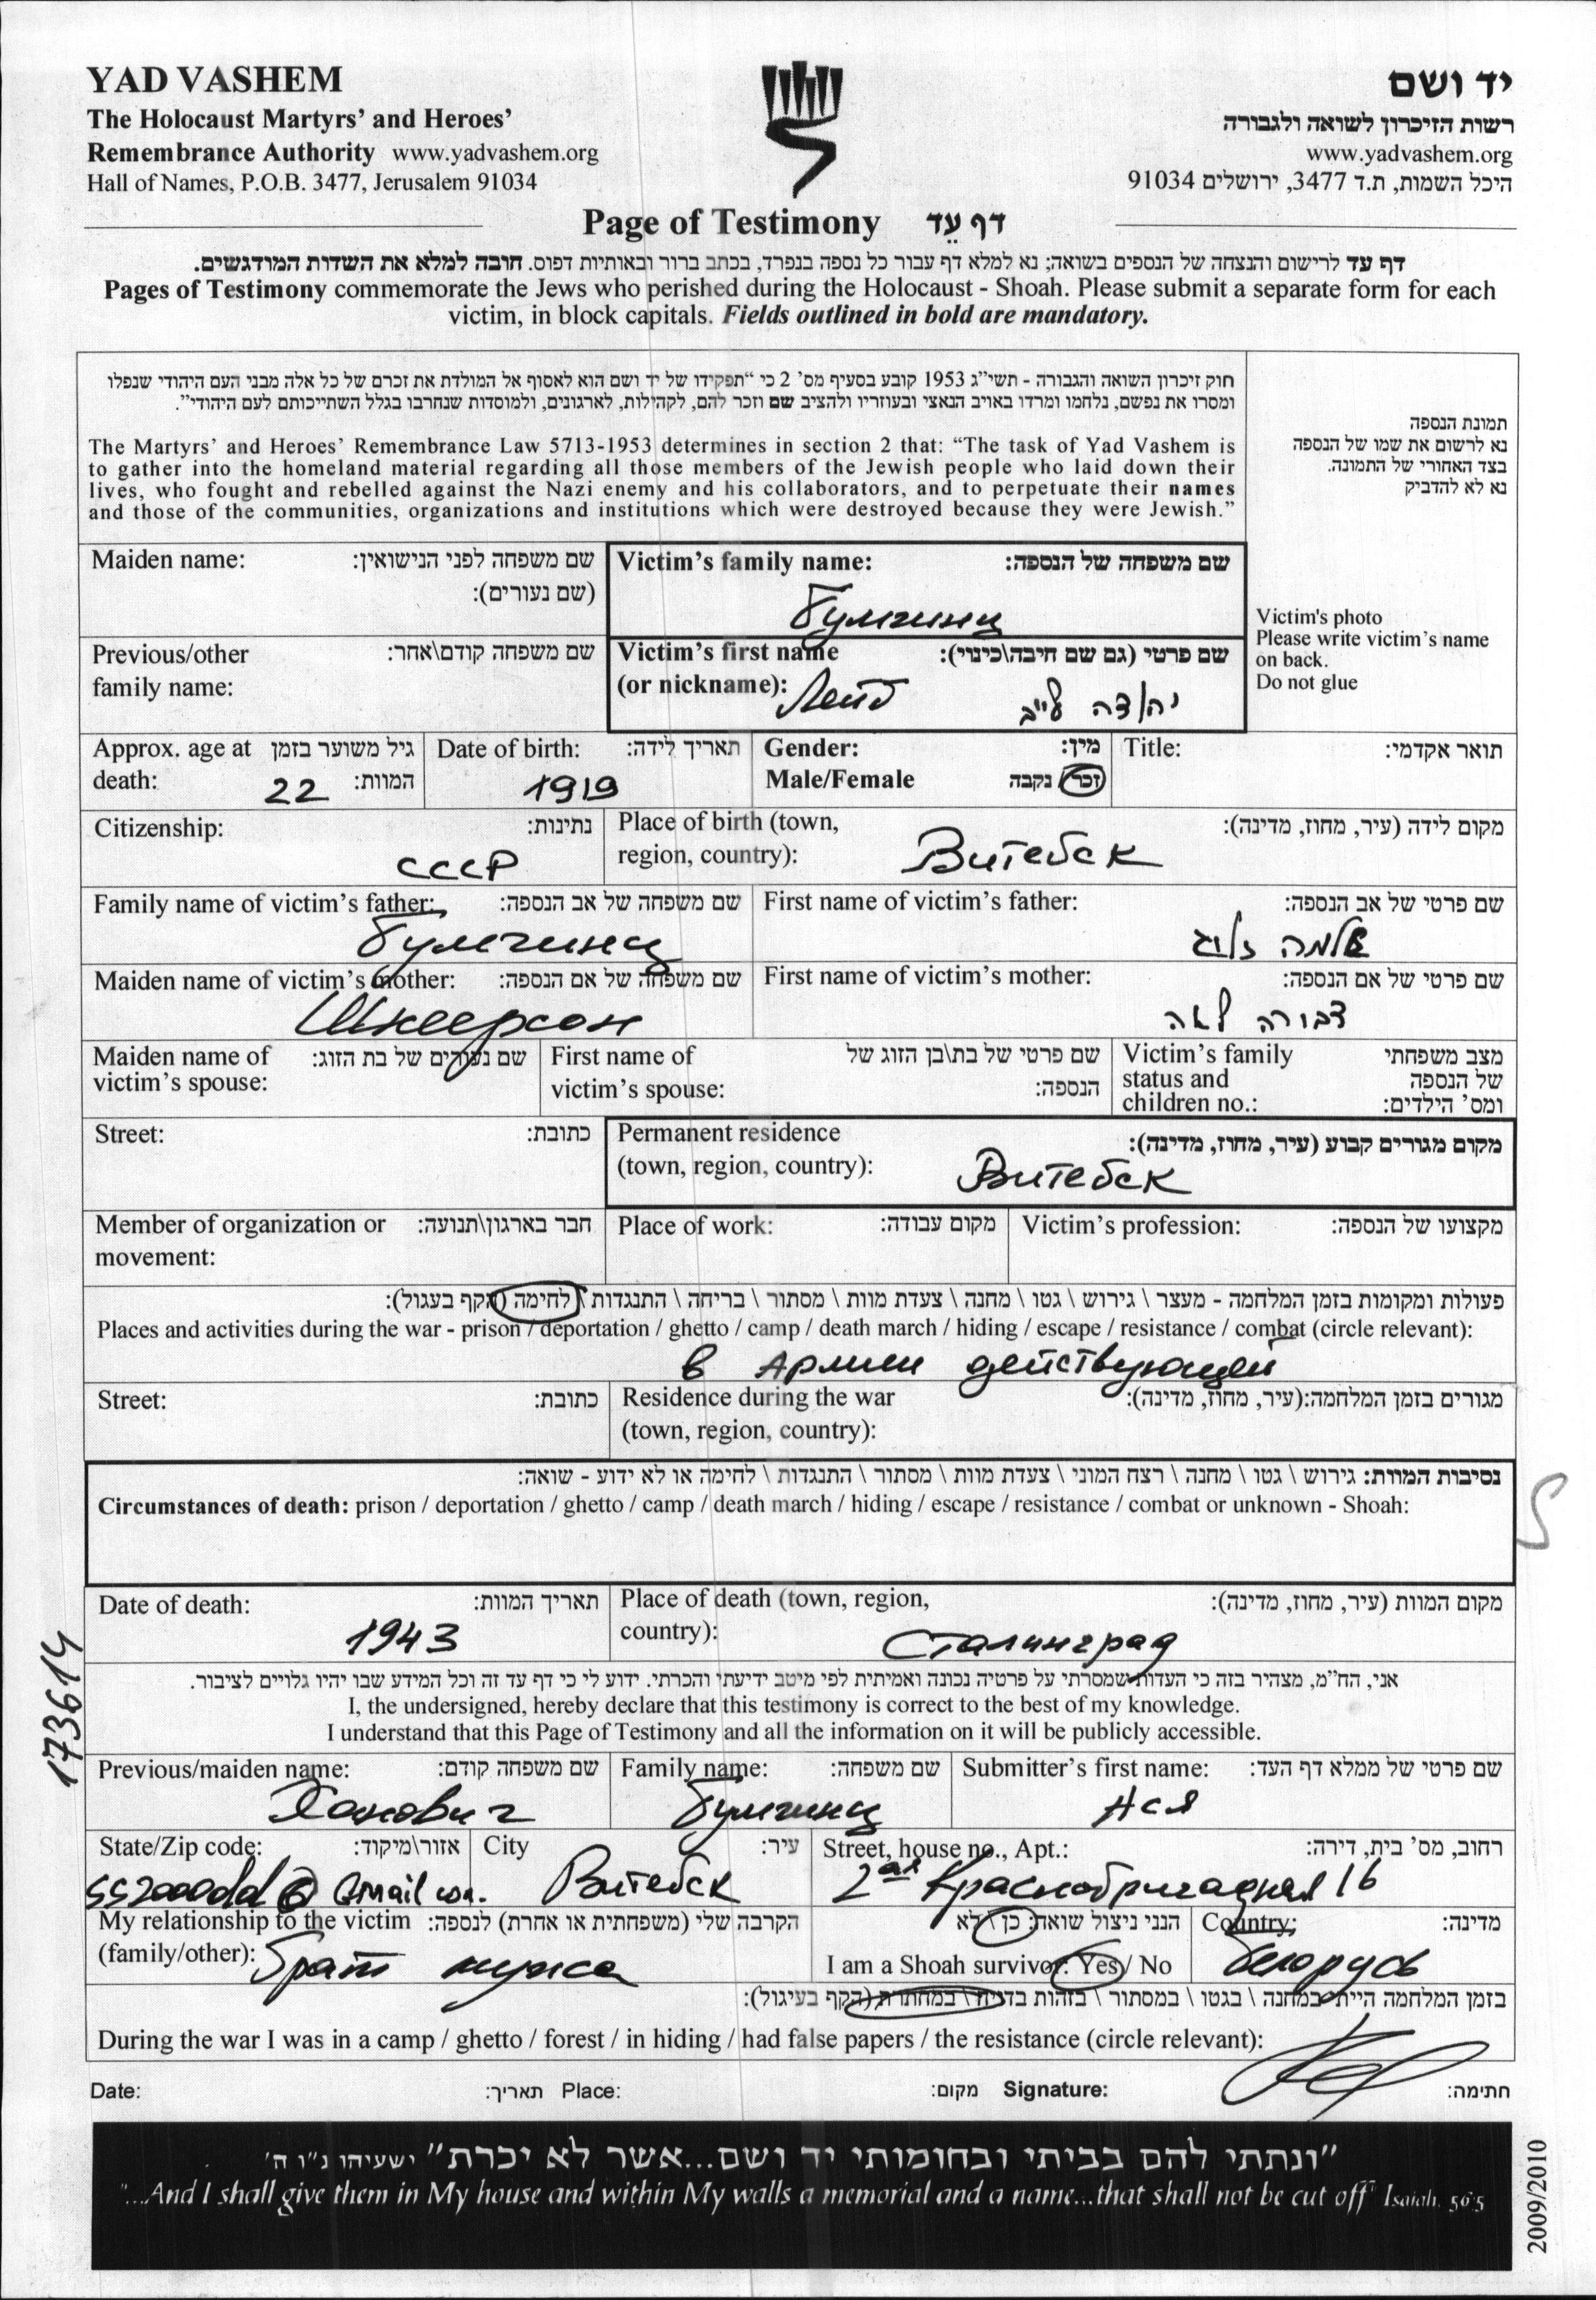 YAD VASHEM
The Holocaust Martyrs' and Heroes'
Remembrance Authority www.yadvashem.org
Hall of Names, P.O.B. 3477, Jerusalem 91034
יד ושם
רשות הזיכרון לשואה ולגבורה
www.yadvashem.org
היכל השמות, ת.ד 3477, ירושלים 91034
Page of Testimony דף עֵד
דף עד לרישום והנצחה של הנספים בשואה; נא למלא דף עבור כל נספה בנפרד, בכתב ברור ובאותיות דפוס. חובה למלא את השדות המודגשים.
Pages of Testimony commemorate the Jews who perished during the Holocaust - Shoah. Please submit a separate form for each
victim, in block capitals. Fields outlined in bold are mandatory.
חוק זיכרון השואה והגבורה - תשי"ג 1953 קובע בסעיף מס' 2 כי "תפקידו של יד ושם הוא לאסוף אל המולדת את זכרם של כל אלה מבני העם היהודי שנפלו
ומסרו את נפשם, נלחמו ומרדו באויב הנאצי ובעוזריו ולהציב שם וזכר להם, לקהילות, לארגונים, ולמוסדות שנחרבו בגלל השתייכותם לעם היהודי".
The Martyrs' and Heroes' Remembrance Law 5713-1953 determines in section 2 that: "The task of Yad Vashem is
to gather into the homeland material regarding all those members of the Jewish people who laid down their
lives, who fought and rebelled against the Nazi enemy and his collaborators, and to perpetuate their names
and those of the communities, organizations and institutions which were destroyed because they were Jewish."
תמונת הנספה
נא לרשום את שמו של הנספה
בצד האחורי של התמונה.
נא לא להדביק
Victim's photo
Please write victim's name
on back.
Do not glue
Maiden name: שם משפחה לפני הנישואין:
(שם נעורים):
Victim's family name: שם משפחה של הנספה:
Гулигинц
Previous/other שם משפחה קודם\אחר:
family name:
Victim's first name שם פרטי (גם שם חיבה\כינוי):
(or nickname): Лейб יהודה לייב
Approx. age at גיל משוער בזמן
death: 22 המוות:
Date of birth: תאריך לידה:
1919
Gender: מין:
Male/Female זכר נקבה
Title: תואר אקדמי:
Citizenship: נתינות:
СССР
Place of birth (town, מקום לידה (עיר, מחוז, מדינה):
region, country): Витебск
Family name of victim's father: שם משפחה של אב הנספה:
First name of victim's father: שם פרטי של אב הנספה:
שלמה זלוג
Maiden name of victim's mother: שם משפחה של אם הנספה:
Шнеерсон
First name of victim's mother: שם פרטי של אם הנספה:
דבורה לאה
Maiden name of שם נעורים של בת הזוג:
victim's spouse:
First name of שם פרטי של בת\בן הזוג של
victim's spouse: הנספה:
Victim's family מצב משפחתי
status and של הנספה
children no.: ומס' הילדים:
Street: כתובת:
Permanent residence מקום מגורים קבוע (עיר, מחוז, מדינה):
(town, region, country): Витебск
Member of organization or חבר בארגון\תנועה:
movement:
Place of work: מקום עבודה:
Victim's profession: מקצועו של הנספה:
פעולות ומקומות בזמן המלחמה - מעצר \ גירוש \ גטו \ מחנה \ צעדת מוות \ מסתור \ בריחה \ התנגדות \ לחימה (הקף בעגול):
Places and activities during the war - prison / deportation / ghetto / camp / death march / hiding / escape / resistance / combat (circle relevant):
в Армии действующей
Street: כתובת:
Residence during the war מגורים בזמן המלחמה:(עיר, מחוז, מדינה):
(town, region, country):
נסיבות המוות: גירוש \ גטו \ מחנה \ רצח המוני \ צעדת מוות \ מסתור \ התנגדות \ לחימה או לא ידוע - שואה:
Circumstances of death: prison / deportation / ghetto / camp / death march / hiding / escape / resistance / combat or unknown - Shoah:
Date of death: תאריך המוות:
1943
Place of death (town, region, מקום המוות (עיר, מחוז, מדינה):
country): Сталинград
אני, הח"מ, מצהיר בזה כי העדות שמסרתי על פרטיה נכונה ואמיתית לפי מיטב ידיעתי והכרתי. ידוע לי כי דף עד זה וכל המידע שבו יהיו גלויים לציבור.
I, the undersigned, hereby declare that this testimony is correct to the best of my knowledge.
I understand that this Page of Testimony and all the information on it will be publicly accessible.
Previous/maiden name: שם משפחה קודם:
Ханович
Family name: שם משפחה:
Submitter's first name: שם פרטי של ממלא דף העד:
Ася
State/Zip code: אזור\מיקוד:
ss2000dd@Gmail con.
City עיר:
Витебск
Street, house no., Apt.: רחוב, מס' בית, דירה:
2ая Краснобригадная 16
My relationship to the victim הקרבה שלי (משפחתית או אחרת) לנספה:
(family/other): брат мужа
הנני ניצול שואה: כן \ לא
I am a Shoah survivor: Yes / No
Country: מדינה:
Белорусь
בזמן המלחמה הייתי במחנה \ בגטו \ במסתור \ בזהות בדויה \ במחתרת (הקף בעיגול):
During the war I was in a camp / ghetto / forest / in hiding / had false papers / the resistance (circle relevant):
Date: תאריך: Place: מקום: Signature: חתימה:
"ונתתי להם בביתי ובחומותי יד ושם...אשר לא יכרת" ישעיהו נ"ו ה'
"...And I shall give them in My house and within My walls a memorial and a name...that shall not be cut off" Isaiah. 56:5
173614
2009/2010